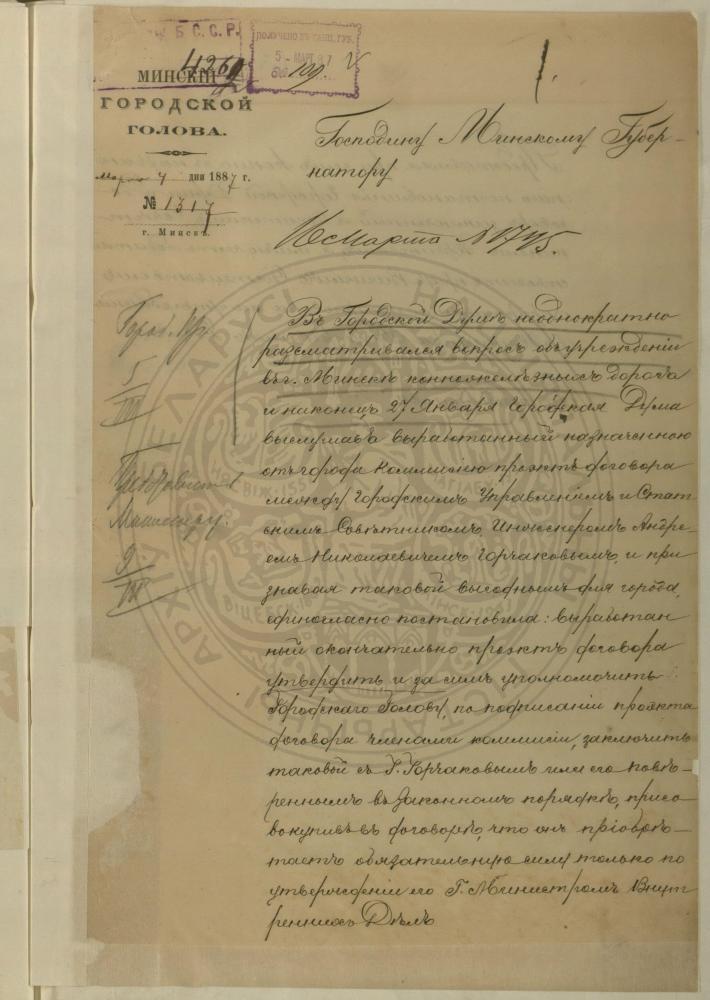 Б.С.С.Р.
ПОЛУЧЕНО
5 МАРТ 87
109
1.
МИНСКІЙ
ГОРОДСКОЙ
ГОЛОВА.
Марта 4 дня 1887 г.
№ 1317
г. Минскъ.
Господину Минскому Губер-
натору
Марта №1745.
Въ Городской Думѣ неоднократно
разсматривался вопросъ объ учрежденіи
въ г. Минскѣ конножелѣзныхъ дорогъ
и наконецъ 27 Января Городская Дума
выслушавъ выработанный назначенною
отъ города коммисіею проэктъ договора
между Городскимъ Управленіемъ и Стат-
скимъ Совѣтникомъ, Инженеромъ Андре-
емъ Николаевичемъ Горчаковымъ, и при-
знавая таковой выгоднымъ для города,
единогласно постановила: выработан
ный окончательно проэктъ договора
утвердить и за симъ уполномочить
Городскаго Голову, по подписаніи проэкта
договора членами коммисіи, заключить
таковой съ Г. Горчаковымъ или его повѣ-
реннымъ въ законномъ порядкѣ, присо
вокупивъ въ договорѣ, что онъ пріобрѣ-
таетъ обязательную силу только по
утвержденіи его Г. Министромъ Внут
реннихъ Дѣлъ
Город. Пр.
5
III
Представить
Министру.
9
III